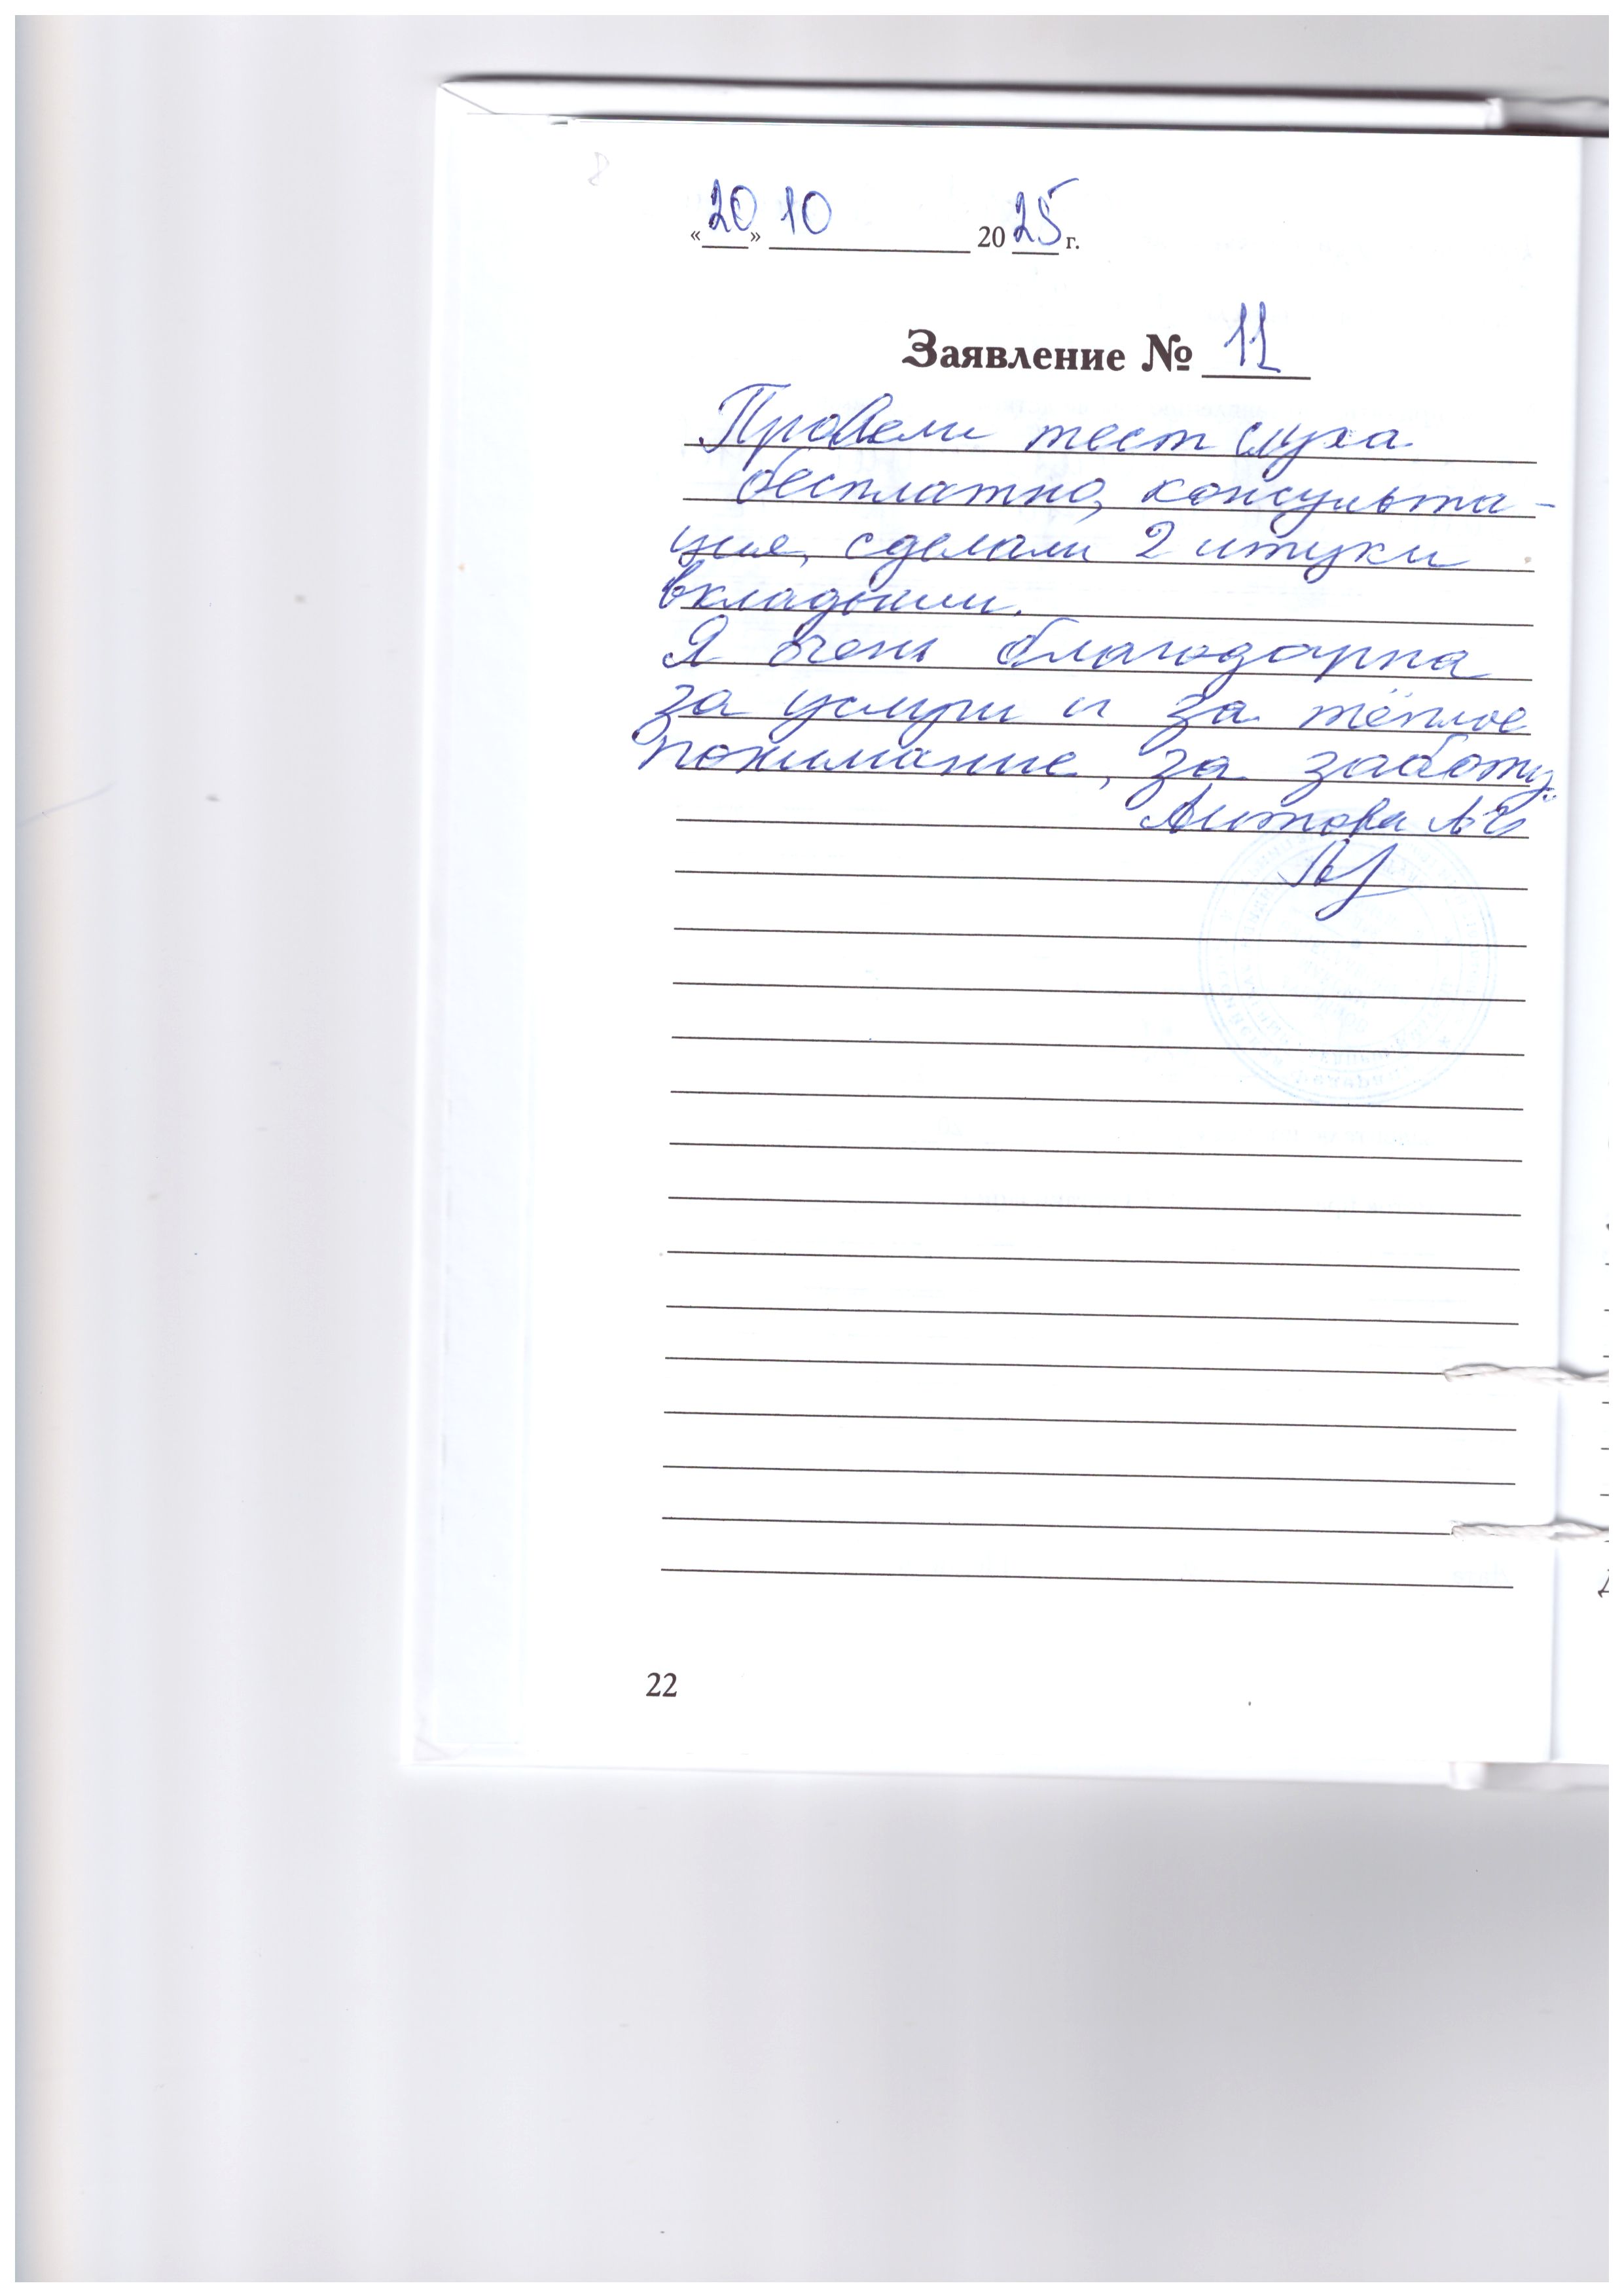 «20» 10 2025 г.
Заявление № 11
Провели тест слуха
бесплатно, консульта-
ция, сделали 2 штуки
вкладыши.
Я очень благодарна
за услуги и за тёплое
понимание, за заботу.
22